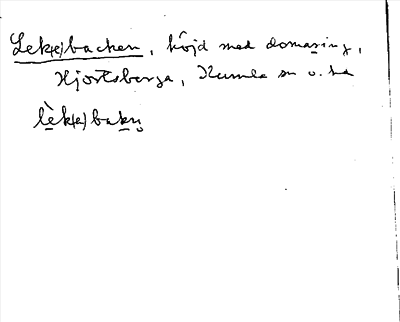 Lek(e)backen, höjd med domarring,
Hjortsberga, Kumla sn o. hd
lèk(e)bakn̥